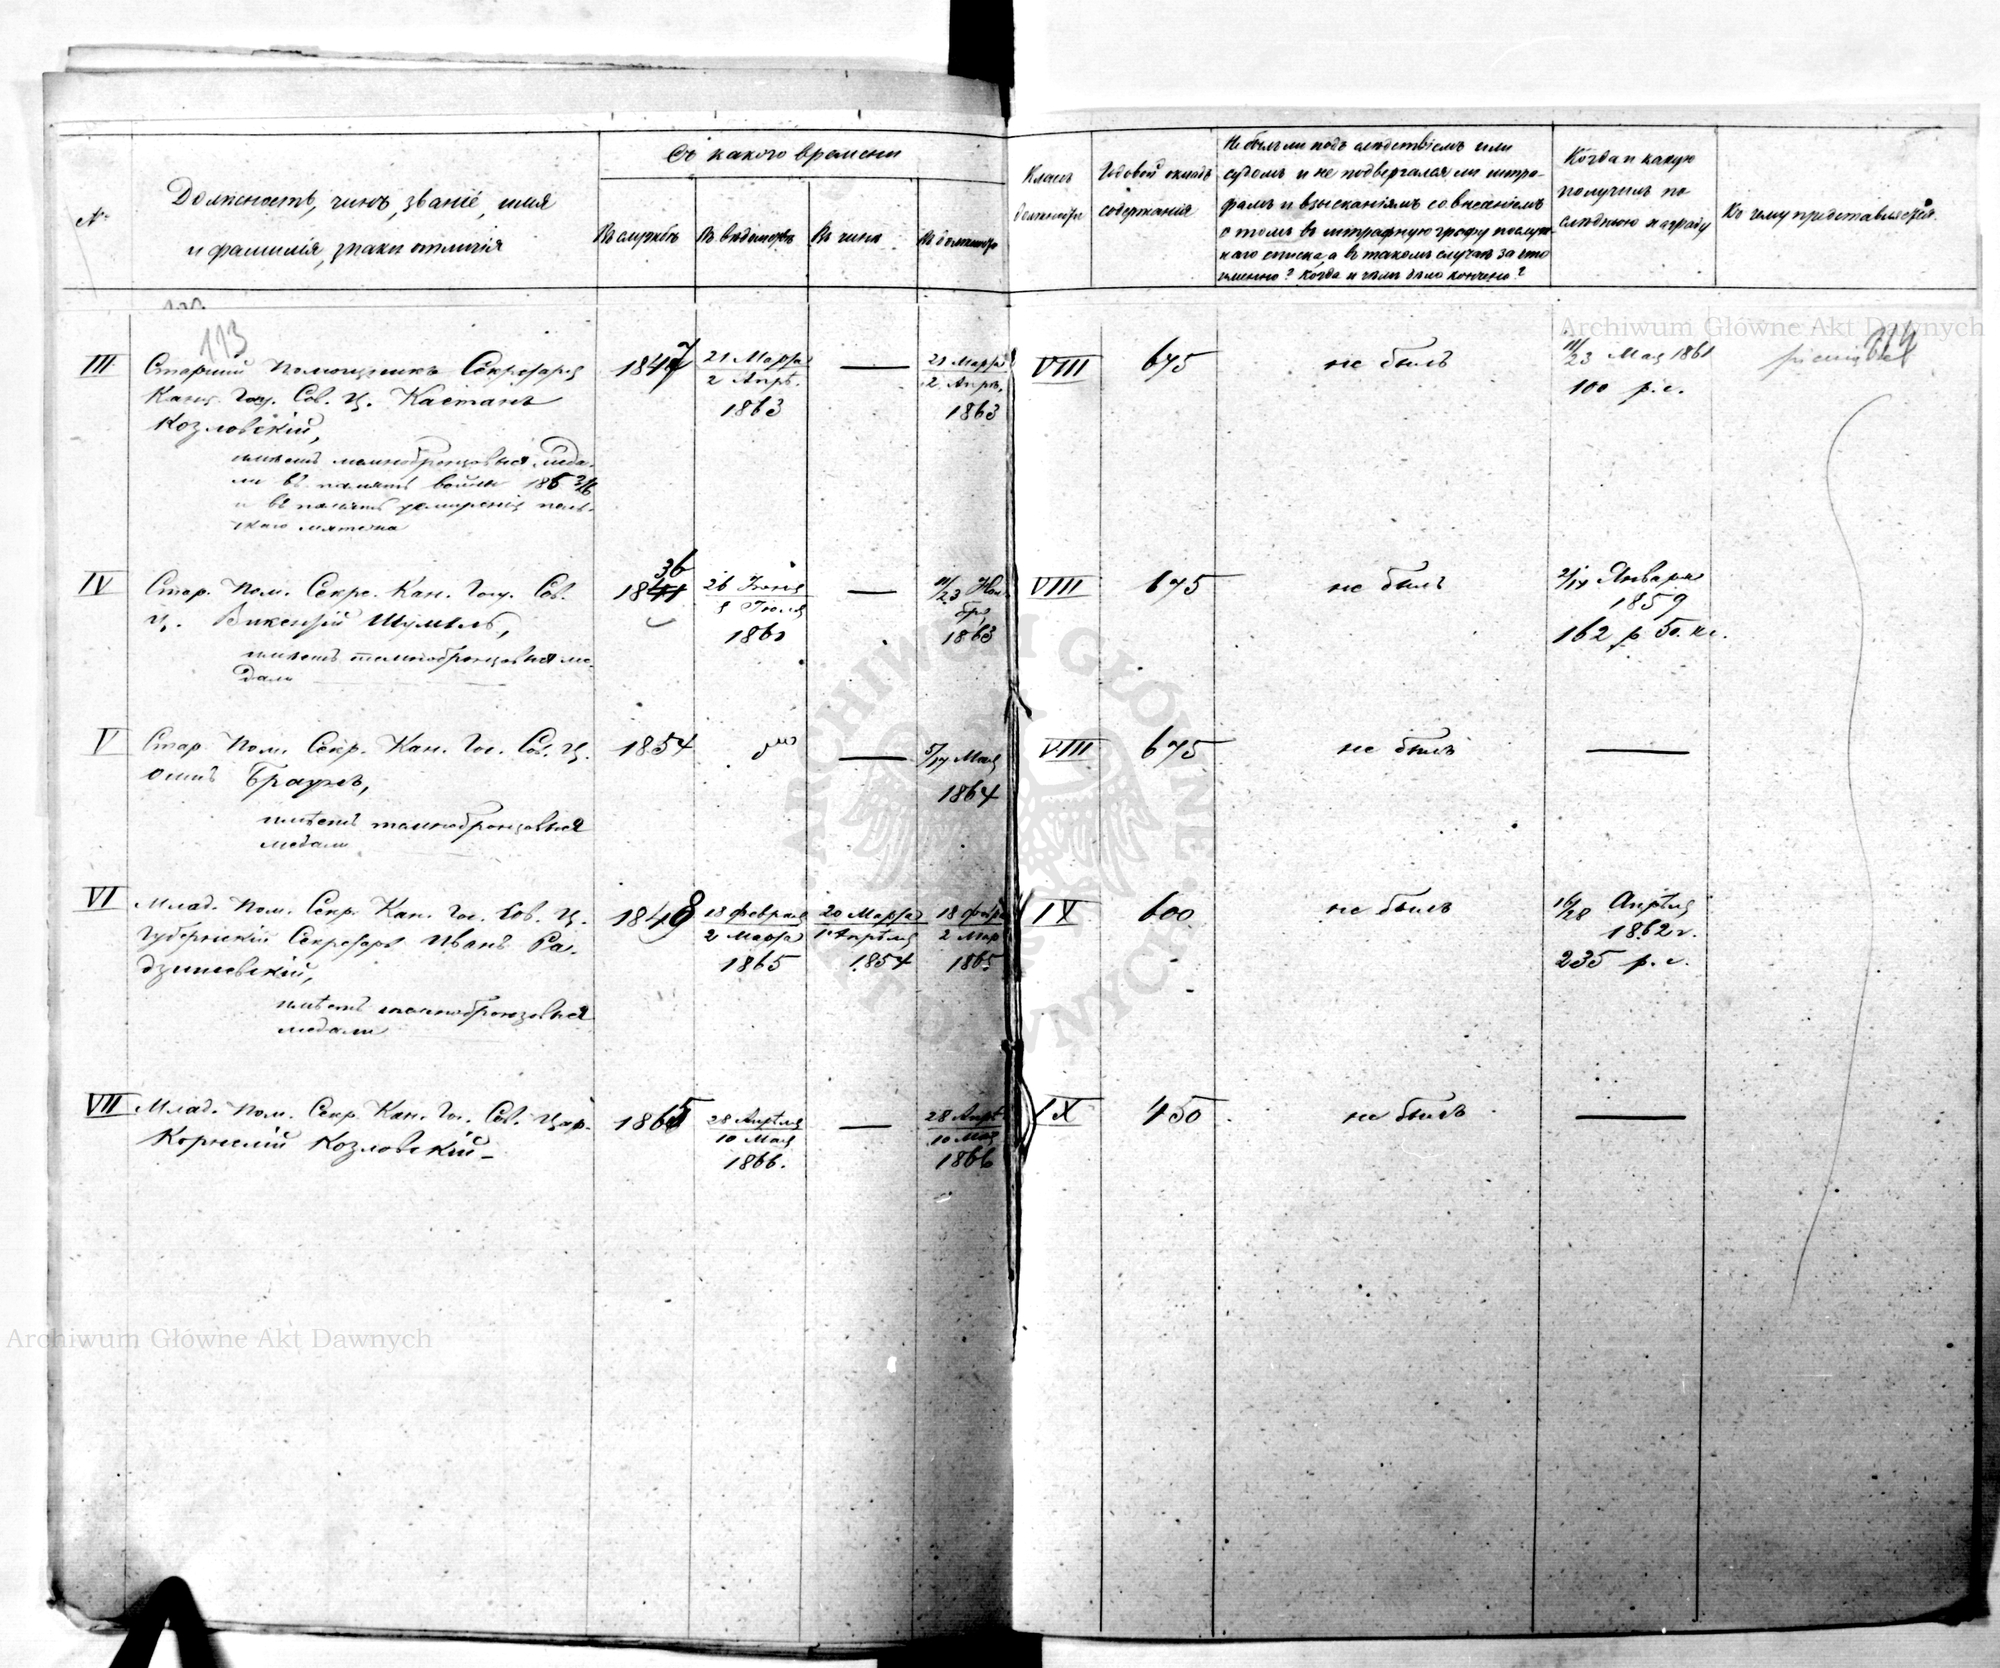 №
Должность, чинъ, званіе, имя
и фамилія, знаки отличія
Съ какого времени
Въ службѣ
Въ вѣдомствѣ
Въ чинѣ
Въ должности
Классъ
должности
Годовой окладъ
содержанія
Не былъ ли подъ слѣдствіемъ или
судомъ и не подвергался ли штра-
фамъ и взысканіямъ со внесеніемъ
о томъ въ штрафную графу послуж-
наго списка, а въ такомъ случаѣ за что
именно? Когда и чѣмъ дѣло кончено?
Когда и какую
получилъ по
слѣднюю награду
Къ чему представляется.
113
III
Старшій Помощникъ Секретаря
Канц. Гос. Сов. Ц. Каетанъ
Козловскій,
имѣетъ темнобронзовыя меда-
ли въ память войны 185 3/6
и въ память усмиренія поль-
скаго мятежа
1847
21 Марта
2 Апрѣ.
1863
—
21 Марта
2 Апрѣ.
1863
VIII
675
не былъ
11/23 Мая 1861
100 р. с.
IV
Стар. Пом. Секре. Кан. Гос. Сов.
Ц. Викентій Шумель,
имѣетъ темнобронзовыя ме-
дали
36
1841
26 Іюня
8 Іюля
1860
—
11/23 Ноя
бря
1863
VIII
675
не былъ
2/14 Января
1859
162 р 50. к.
V
Стар. Пом. Секр. Кан. Гос. Сов. Ц.
Ѳома Браунъ,
имѣетъ темнобронзовыя
медали
1854
—
5/17 Мая
1864
VIII
675
не былъ
—
VI
Млад. Пом. Секр. Кан. Гос. Сов. Ц.
Губернскій Секретарь Иванъ Ра-
дзишевскій,
имѣетъ темнобронзовыя
медали
1848
18 Февраля
2 Марта
1865
20 Марта
1 Апрѣля
1854
18 Февр
2 Мар
1865
IX
600
не былъ
16/28 Апрѣля
1862 г.
235 р. с.
VII
Млад. Пом. Секр. Кан. Гос. Сов. Цар.
Корнелій Козловскій
1865
28 Апрѣля
10 Мая
1866.
—
28 Апрѣ
10 Мая
1866
IX
450
не былъ
—
Archiwum Główne Akt Dawnych
Archiwum Główne Akt Dawnych
ARCHIWUM GŁÓWNE AKT DAWNYCH